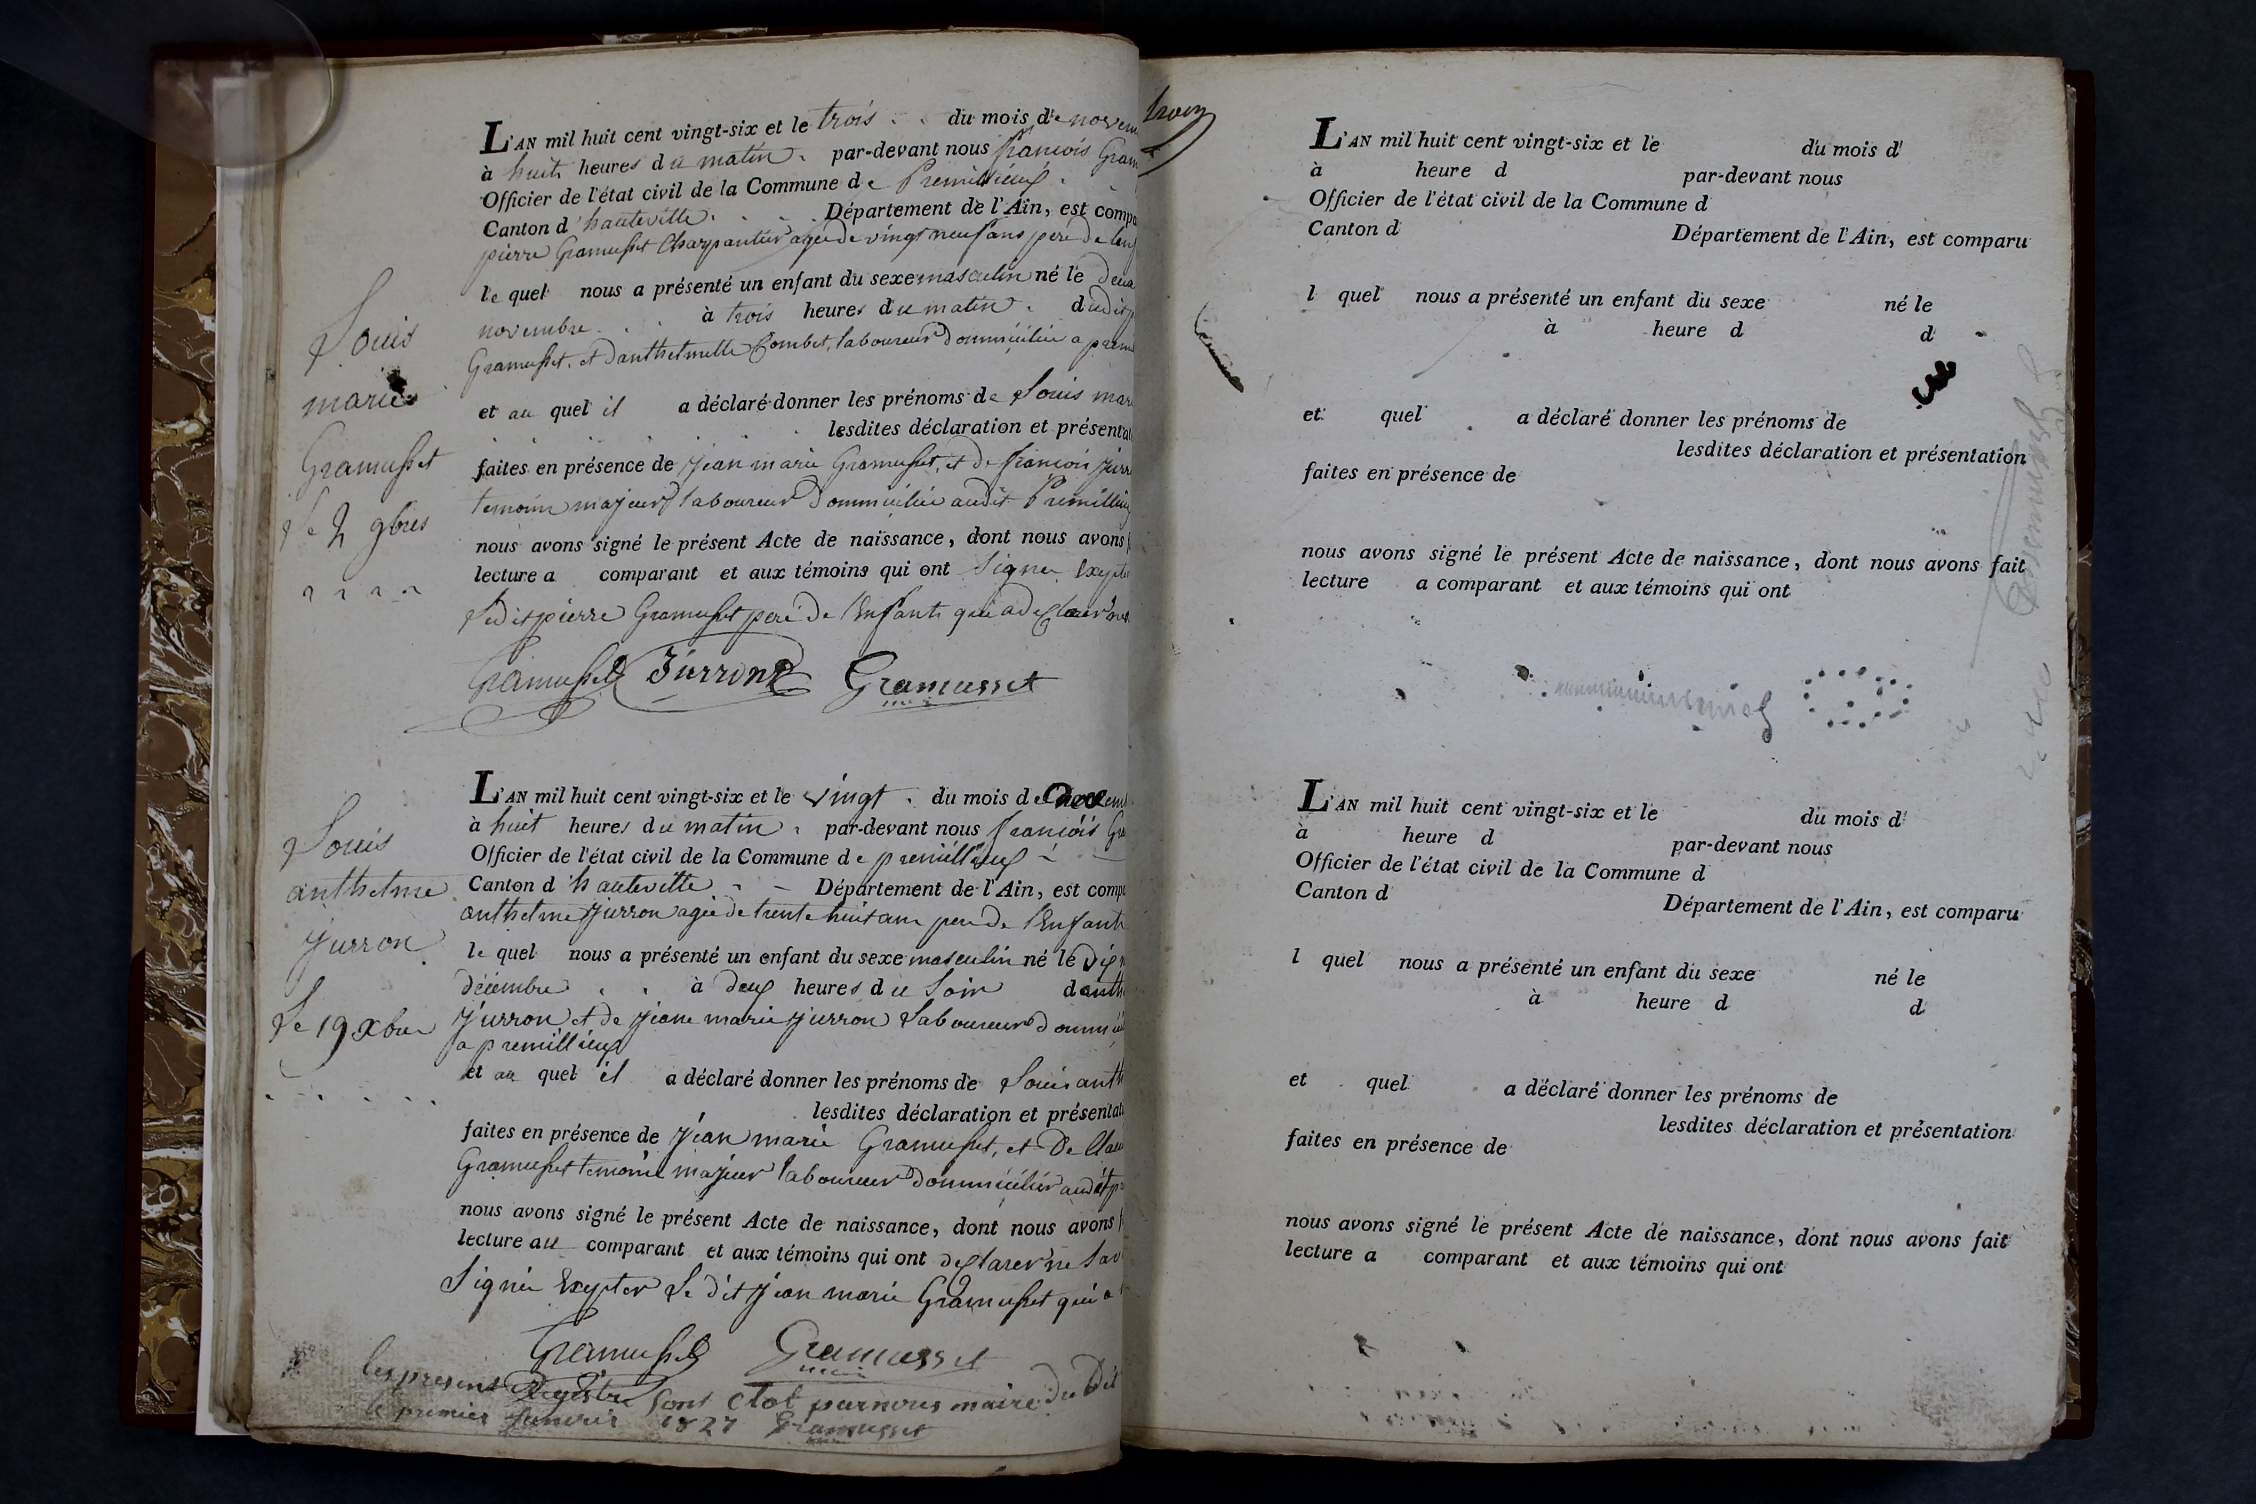 L'AN mil huit cent vingt-six et le trois du mois de novem
à huit heures du matin par-devant nous francois Gram
Officier de l'état civil de la Commune de Premillieux
Canton d'hauteville Département de l'Ain, est compa
pierre Gramusset Charpantier agée de vingt neuf ans pere de lenf
le quel nous a présenté un enfant du sexe masculin né le deux
novembre à trois heures du matin dudit p
Gramusset, et danthelmette Combet, laboureur dommicilié a prem
et au quel il a déclaré donner les prénoms de Louis mari
lesdites déclaration et présentat
faites en présence de Jean marie Gramusset, et de francois Jurro
temoin majeur laboureur dommicilié audit Premillieu
nous avons signé le présent Acte de naissance, dont nous avons f
lecture a comparant et aux témoins qui ont Signer Exepter
Ledit pierre Gramusset pere de lenfant qui a desclarer ne
Gramusset Jurron Gramusset
maire
Louis
marie
Gramusset
Le 2 9bres
L'AN mil huit cent vingt-six et le vingt du mois de decem
à huit heures du matin par-devant nous francois Gra
Officier de l'état civil de la Commune de premillieux
Canton d'hauteville Département de l'Ain, est compa
anthelme Jurron agée de trente huit ans pere de lenfant
le quel nous a présenté un enfant du sexe masculin né le dix n
décembre à deux heures du Soir danth
Jurron et de Jeane marie Jurron Laboureur dommicil
a premillieux
et au quel il a déclaré donner les prénoms de Louis anth
lesdites déclaration et présentati
faites en présence de Jean marie Gramusset, et De Clau
Gramusset temoin majeur laboureur dommicilier audit p
nous avons signé le présent Acte de naissance, dont nous avons f
lecture au comparant et aux témoins qui ont desclarer ne Sav
Signié Exepter Le dit Jean marie Gramusset qui a
Gramusset Gramusset
maire
les present Registre Sont Clot par nous maire du Dit
le premier Janvier 1827 Gramusset
Louis
anthelme
Jurron
Le 19 Xbre
L'AN mil huit cent vingt-six et le du mois d
à heure d par-devant nous
Officier de l'état civil de la Commune d
Canton d Département de l'Ain, est comparu
l quel nous a présenté un enfant du sexe né le
à heure d d
et quel a déclaré donner les prénoms de
lesdites déclaration et présentation
faites en présence de
nous avons signé le présent Acte de naissance, dont nous avons fait
lecture a comparant et aux témoins qui ont
L'AN mil huit cent vingt-six et le du mois d
à heure d par-devant nous
Officier de l'état civil de la Commune d
Canton d Département de l'Ain, est comparu
l quel nous a présenté un enfant du sexe né le
à heure d d
et quel a déclaré donner les prénoms de
lesdites déclaration et présentation
faites en présence de
nous avons signé le présent Acte de naissance, dont nous avons fait
lecture a comparant et aux témoins qui ont